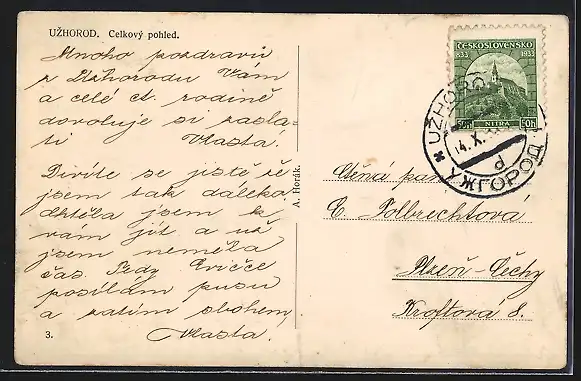 UŽHOROD. Celkový pohled.
Mnoho pozdravů
z Užhorodu Vám
a celé ct. rodině
dovoluje si zasla-
ti Vlasta.
Divíte se jistě že
jsem tak daleko
chtěla jsem k
vám jít a už
jsem neměla
čas. Tedy Evičce
posílám pusu
a zatím sbohem,
Vlasta.
3.
A. Horák.
ČESKOSLOVENSKO
833 1933
NITRA
50h
UŽHOROD
14.X.
d
УЖГОРОД
Ctěná paní
E. Tolbrechtová
Plzeň-Čechy
Kroftova 8.